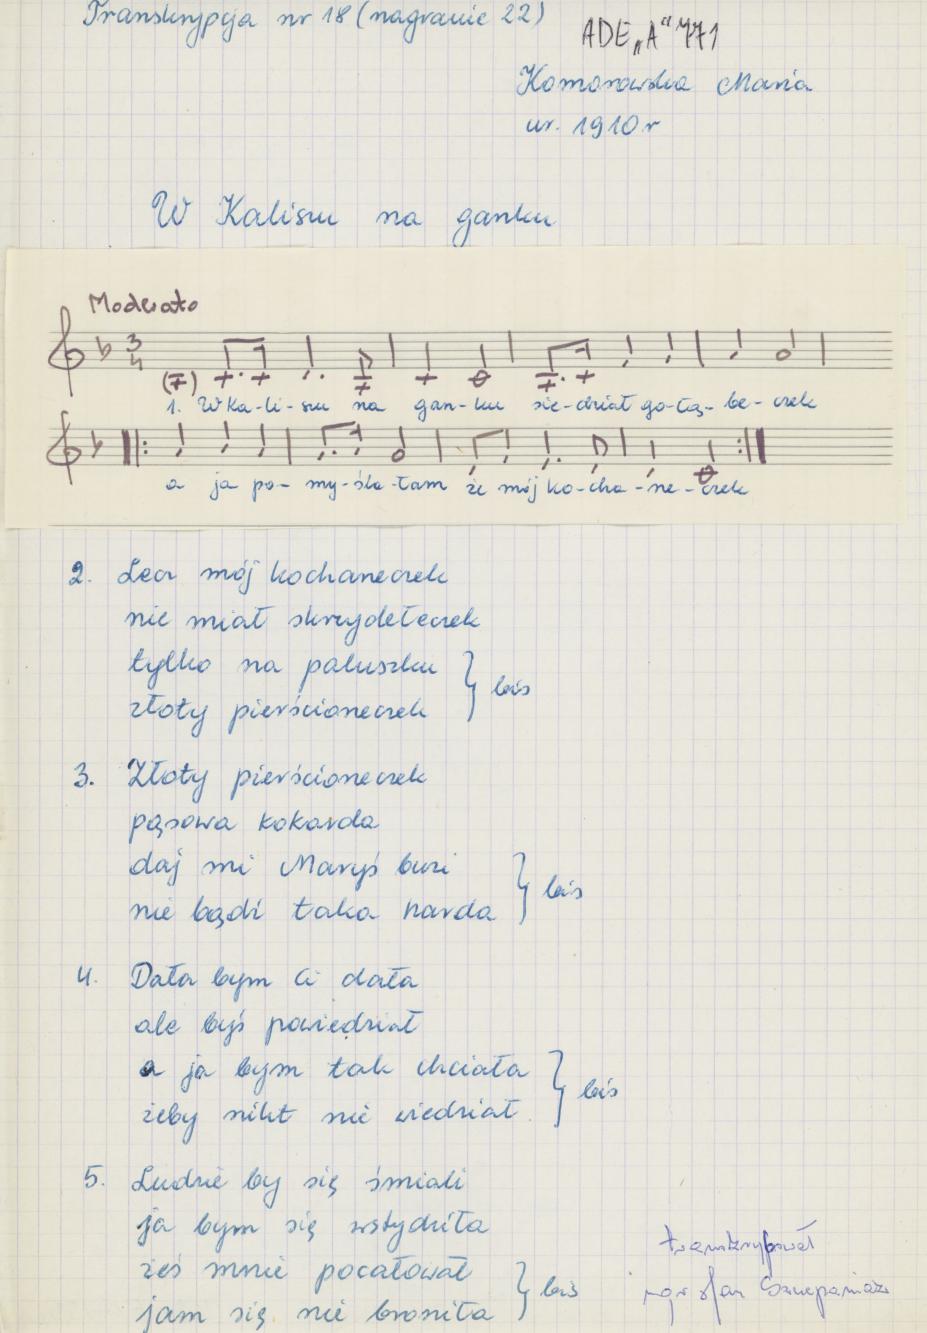 Transkrypcja nr 18 (nagranie 22)
ADE „A" 771
Komorowska Maria
ur. 1910 r
W Kaliszu na ganku
Moderato
1. W Ka-li-szu na gan-ku sie-dział go-łą-be-czek
a ja po-my-śla-łam że mój ko-cha-ne-czek
2. Lecz mój kochaneczek
nie miał skrzydełeczek
tylko na paluszku
złoty pierścioneczek } bis
3. Złoty pierścioneczek
pąsowa kokarda
daj mi Maryś buzi
nie bądź taka harda } bis
4. Dała bym Ci dała
ale byś powiedział
a ja bym tak chciała
żeby nikt nie wiedział } bis
5. Ludzie by się śmiali
ja bym się wstydziła
żeś mnie pocałował
jam się nie broniła } bis
transkrybował
mgr Jan Szczepaniak